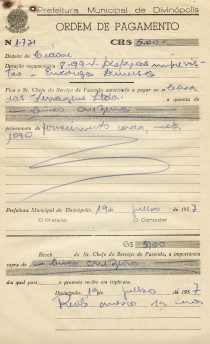 Prefeitura Municipal de Divinópolis
ORDEM DE PAGAMENTO
N 1.721 CR$ 5,00
Distrito de Cidade
Dotação orçamentária 8-99-4 Despesas imprevis-
tas -
Fica o Sr. Chefe do Serviço de Fazenda autorizado a pagar a
Ferragens Ltda.
a quantia de
cinco cruzeiros
proveniente de fornecimento conf. nota
1090
Prefeitura Municipal de Divinópolis, 19 de julho de 1957
O Prefeito O Contador
CR$ 5,00
Receb do Sr. Chefe do Serviço de Fazenda, a importância
supra de cinco cruzeiros
da qual passo o presente recibo em triplicata.
Divinópolis, 19 de julho de 1957